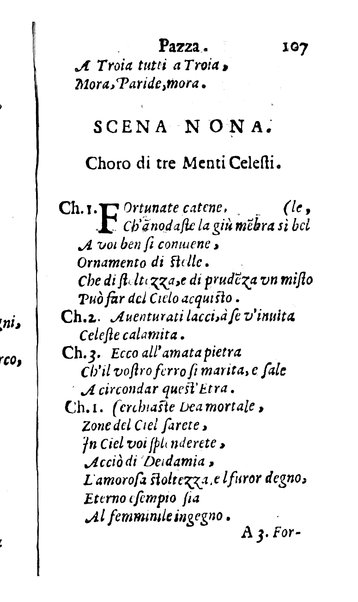 Pazza. 107
A Troia tutti a Troia,
Mora, Paride, mora.
SCENA NONA.
Choro di tre Menti Celesti.
Ch. 1. FOrtunate catene, (le,
Ch'ãnodaſte la giù mẽbra sì bel
A voi ben ſi conuiene,
Ornamento di ſtelle.
Che di ſtoltezza, e di prudẽza vn miſto
Può far del Cielo acquiſto.
Ch. 2. Auenturati lacci, à ſe v'inuita
Celeſte calamita.
Ch. 3. Ecco all'amata pietra
Ch'il voſtro ferro ſi marita, e ſale
A circondar queſt'Etra.
Ch. 1. Cerchiaſte Dea mortale,
Zone del Ciel ſarete,
In Ciel voi ſplenderete,
Acciò di Deidamia,
L'amoroſa ſtoltezza, e'l furor degno,
Eterno eſempio ſia
Al femminile ingegno.
A 3. For-
gni,
rco,